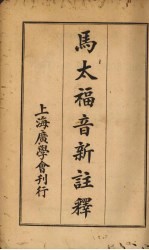 馬太福音新註釋
上海廣學會刊行